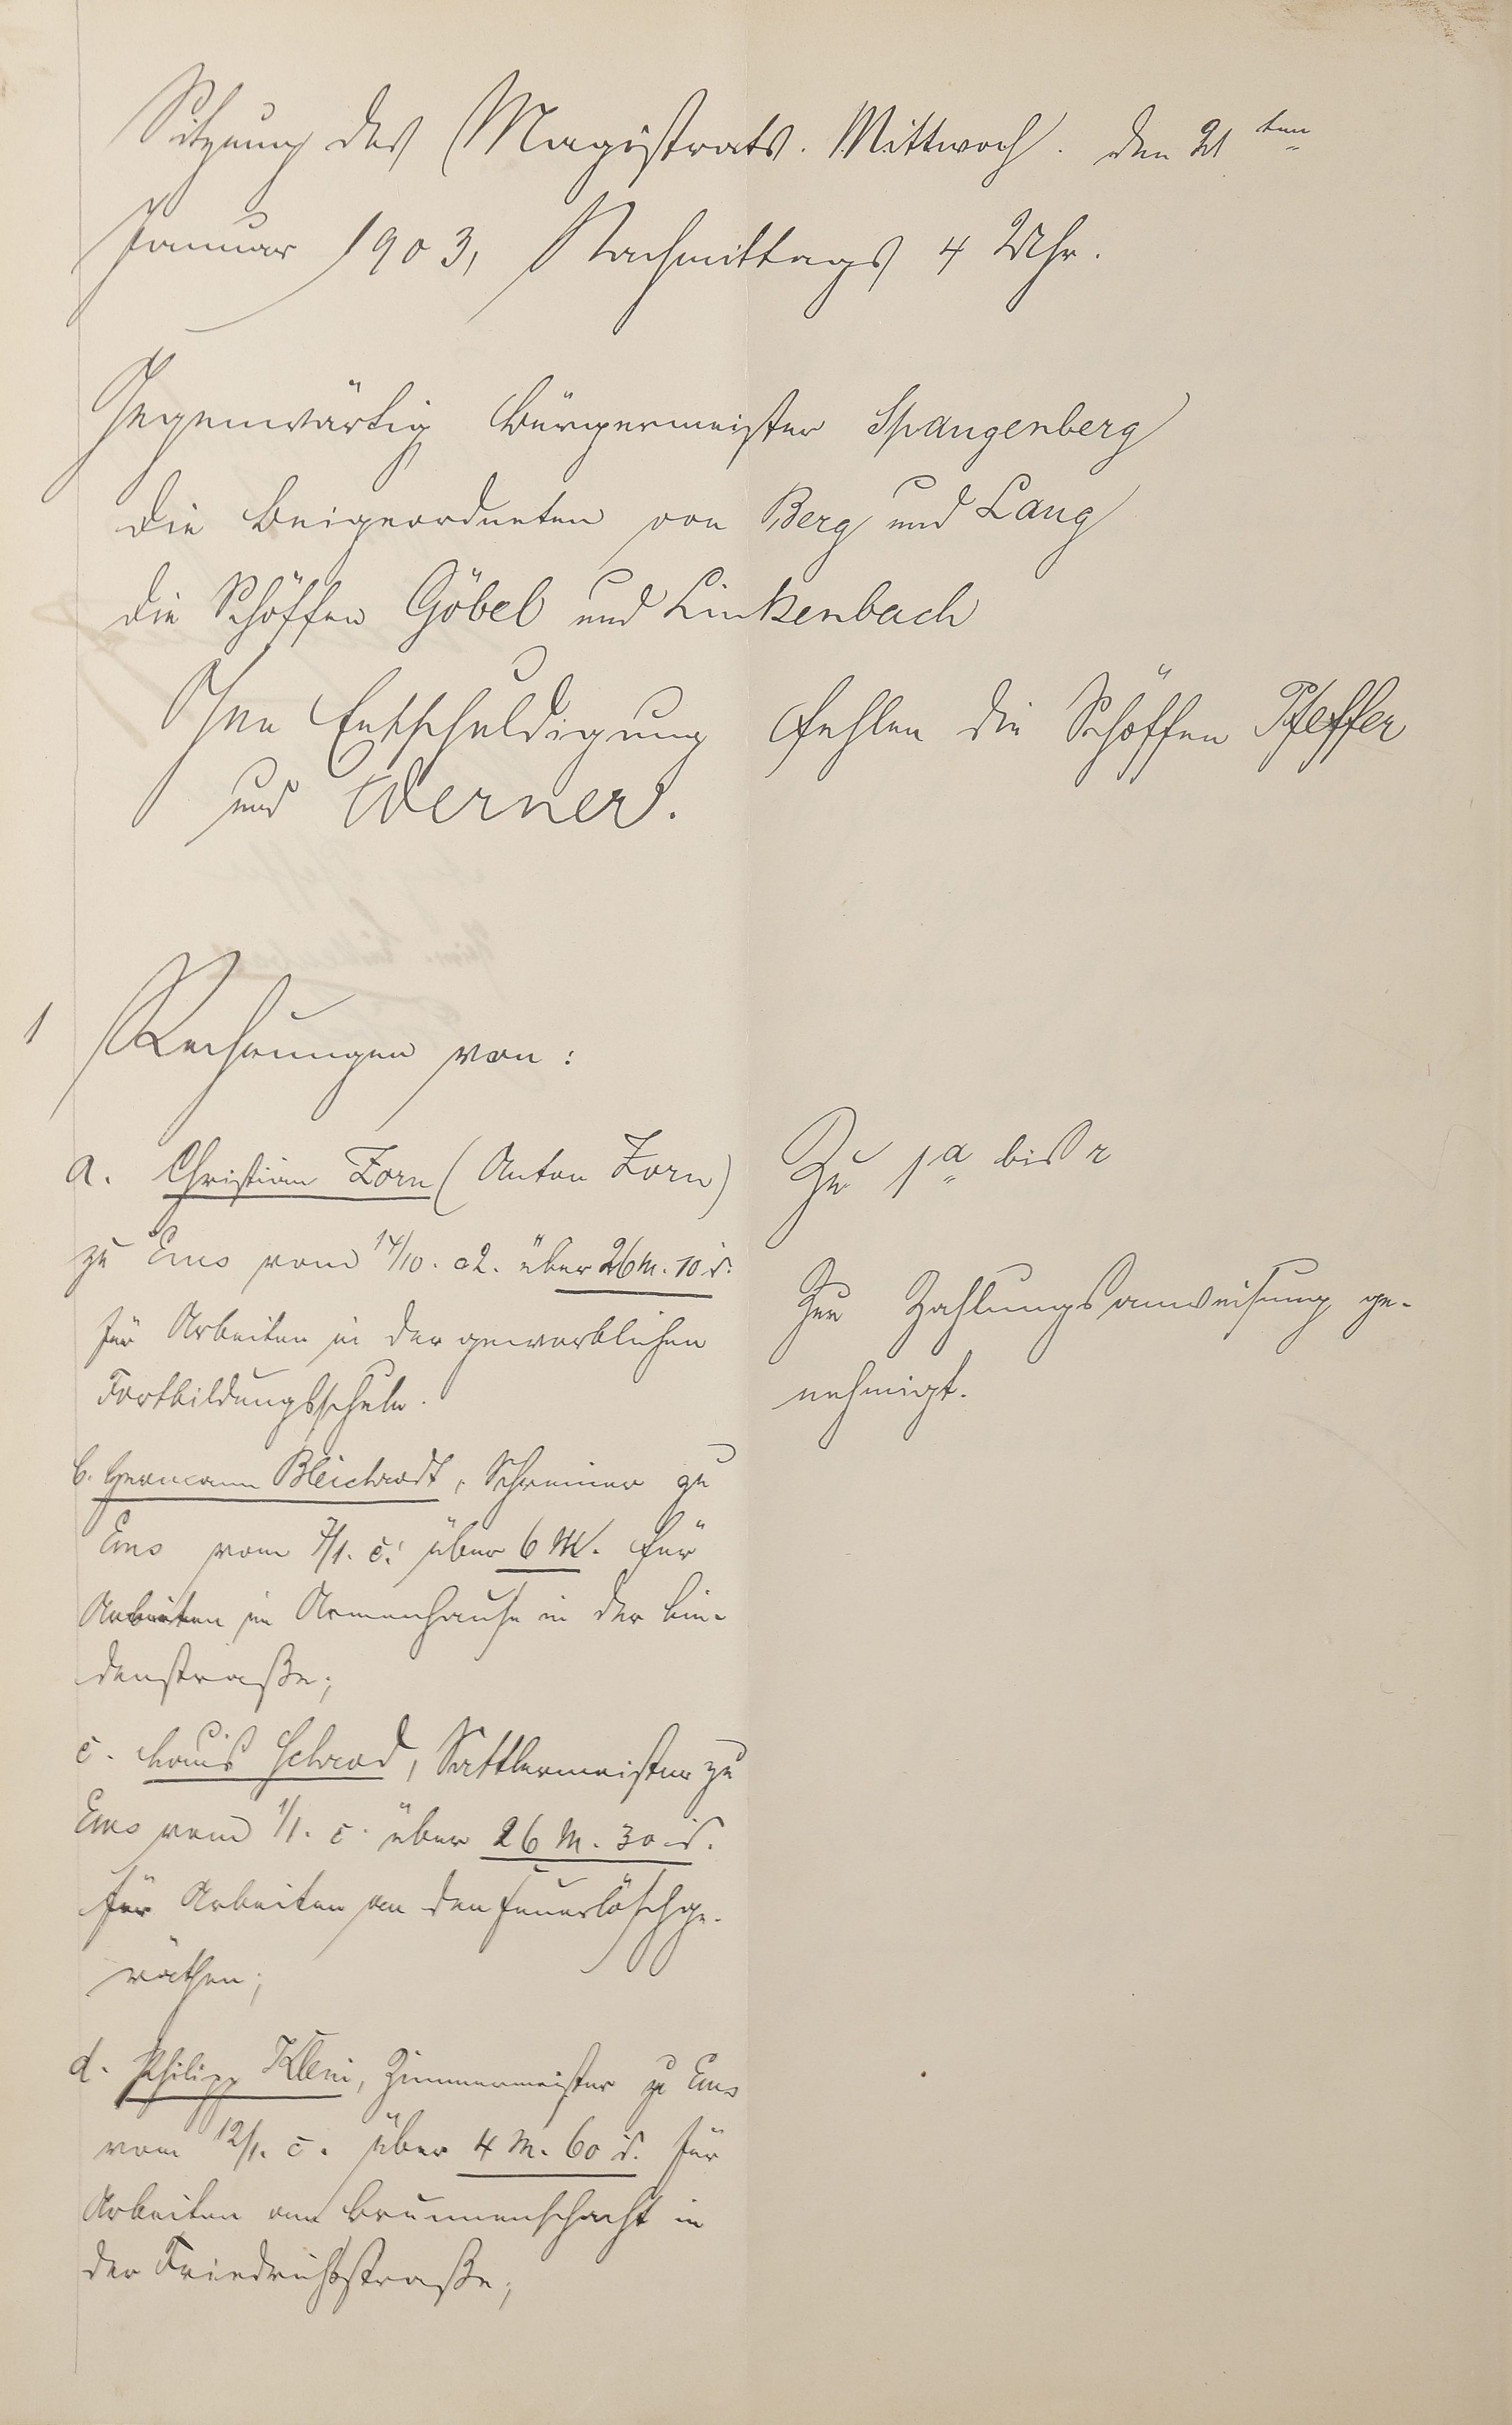 Sitzung des Magistrats. Mittwoch. den 21ten
Januar 1903, Nachmittags 4 Uhr.
Gegenwärtig Bürgermeister Spangenberg
die Beigeordneten von Berg und Lang
die Schöffen Göbel und Linkenbach
Ohne Entschuldigung fehlen die Schöffen Pfeffer
und Werner.
1 Rechnungen von:
a. Christian Zorn (Anton Zorn)
zu Ems vom 14/10. 02. über 26 M. 10 d.
für Arbeiten in der gewerblichen
Fortbildungsschule.
b. Hermann Bleichrodt, Schreiner zu
Ems vom 7/1. c. über 6 M. für
Arbeiten im Armenhause in der Lin-
denstraße;
c. Louis Schrod, Sattlermeister zu
Ems vom 1/1. c. über 26 M. 30 d.
für Arbeiten an den Feuerlöschge-
räthen;
d. Philipp Klein, Zimmermeister zu Ems
vom 12/1. c. über 4 M. 60 d. für
Arbeiten am Brunnenschacht in
der Friedrichsstraße;
Zu 1 a bis r
Zur Zahlungsanweisung ge-
nehmigt.